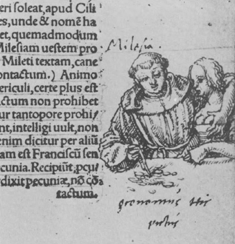 eri soleat, apud Cili
es, unde & nomē ha
et, quemadmodum
Milesiam uestem pro
Mileti textam, cane
ontactum.) Animo
ericuli, certe plus est
actum non prohibet
ur tantopere prohi/
nt, intelligi uult, non
enim dicitur per aliū
am est Franciscū sen
cunia. Recipiūt, pcu/
dixit pecuniæ, nō cō
tactum.
Milesia